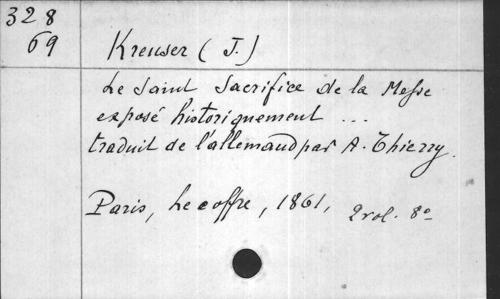 328
69
Kreuser (J.)
Le Saint Sacrifice de la Messe
exposé historiquement ...
traduit de l'allemand par A. Thierry.
Paris, Lecoffre, 1861, 2 vol. 8°